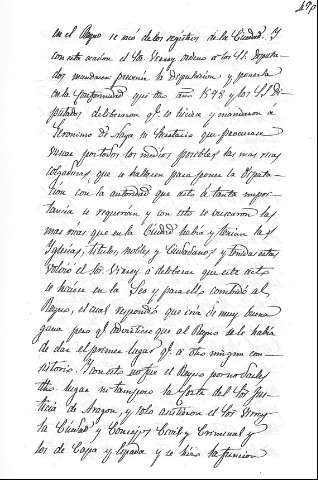 en el Reyno se vió de los registros de la Ciudad. Y
con esta ocasion el Sr. Virrey ordeno a los SS. Diputa-
dos mandasen prevenir la Diputacion y ponerla
en la conformidad que dho año 1598 y los SS. Di-
putados deliberaron qe. se hiciera y mandaron á
Geronimo de Naya su Notario que procurase
buscar por todos los medios posibles las mas ricas
colgaduras, que se hallasen para poner la Diputa-
cion con la autoridad que acto de tanta impor-
tancia se requerian y con esto se buscaron las
mas ricas que en la Ciudad habia y tenian las
Iglesias, titulos, nobles y Ciudadanos y
volvió el Sr. Virrey á deliberar que este acto
se hiciese en la Seo y para ello convidó al
Reyno, el cual respondió que iria de muy buena
gana pero qe. advirtiese que al Reyno se le habia
de dar el primer lugar qe. á otro ningun con-
sistorio. Y con esto no fue el Reyno por no darles
dho lugar ni tampoco la Corte del Sor. Jus-
ticia de Aragon, y solo asistieron el Sor. Virrey
la Ciudad y Consejos Civil y Criminal y
los de Capa y Espada y se hizo la funcion